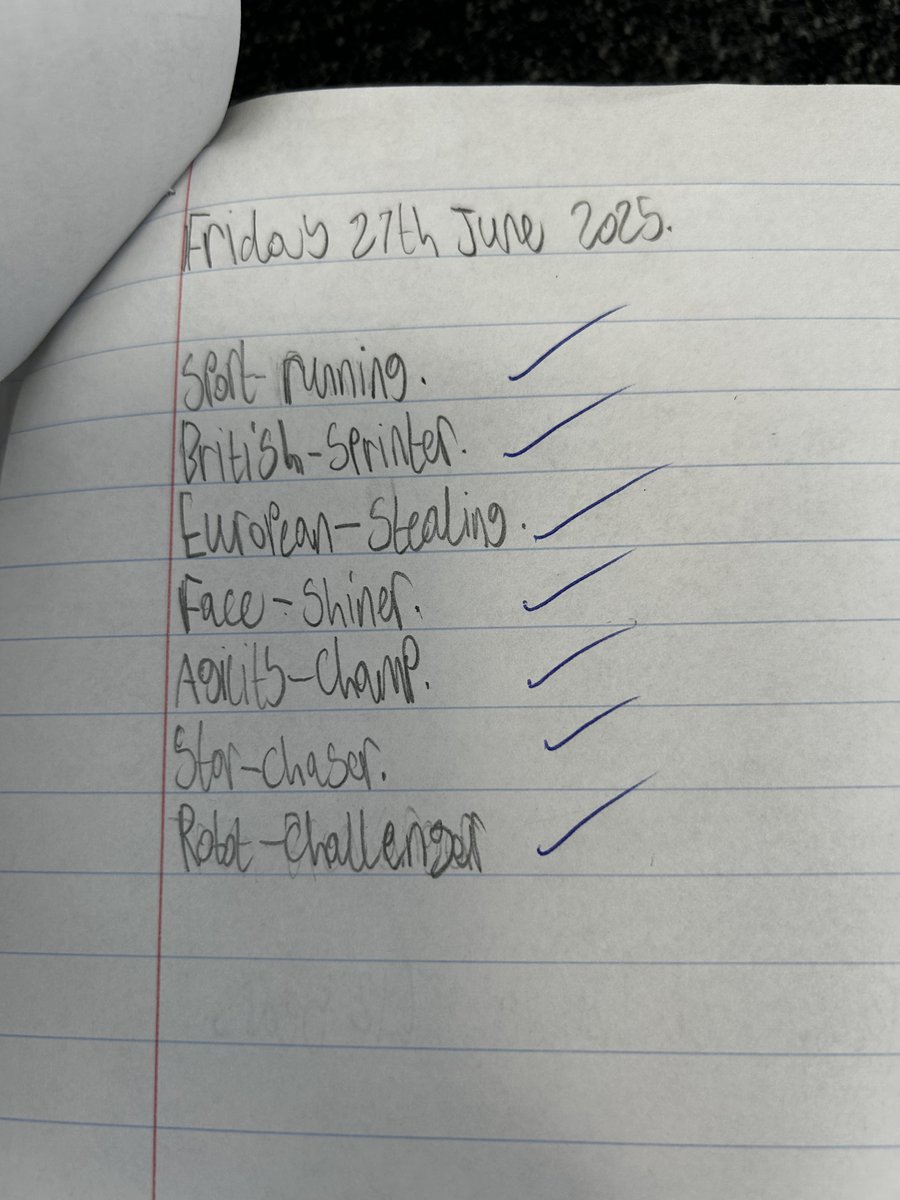 Friday 27th June 2025.
Sport running.
British-Sprinter.
European-Stealing.
Face-Shiner.
Agility-Champ.
Star-chaser.
Robot-Challenger